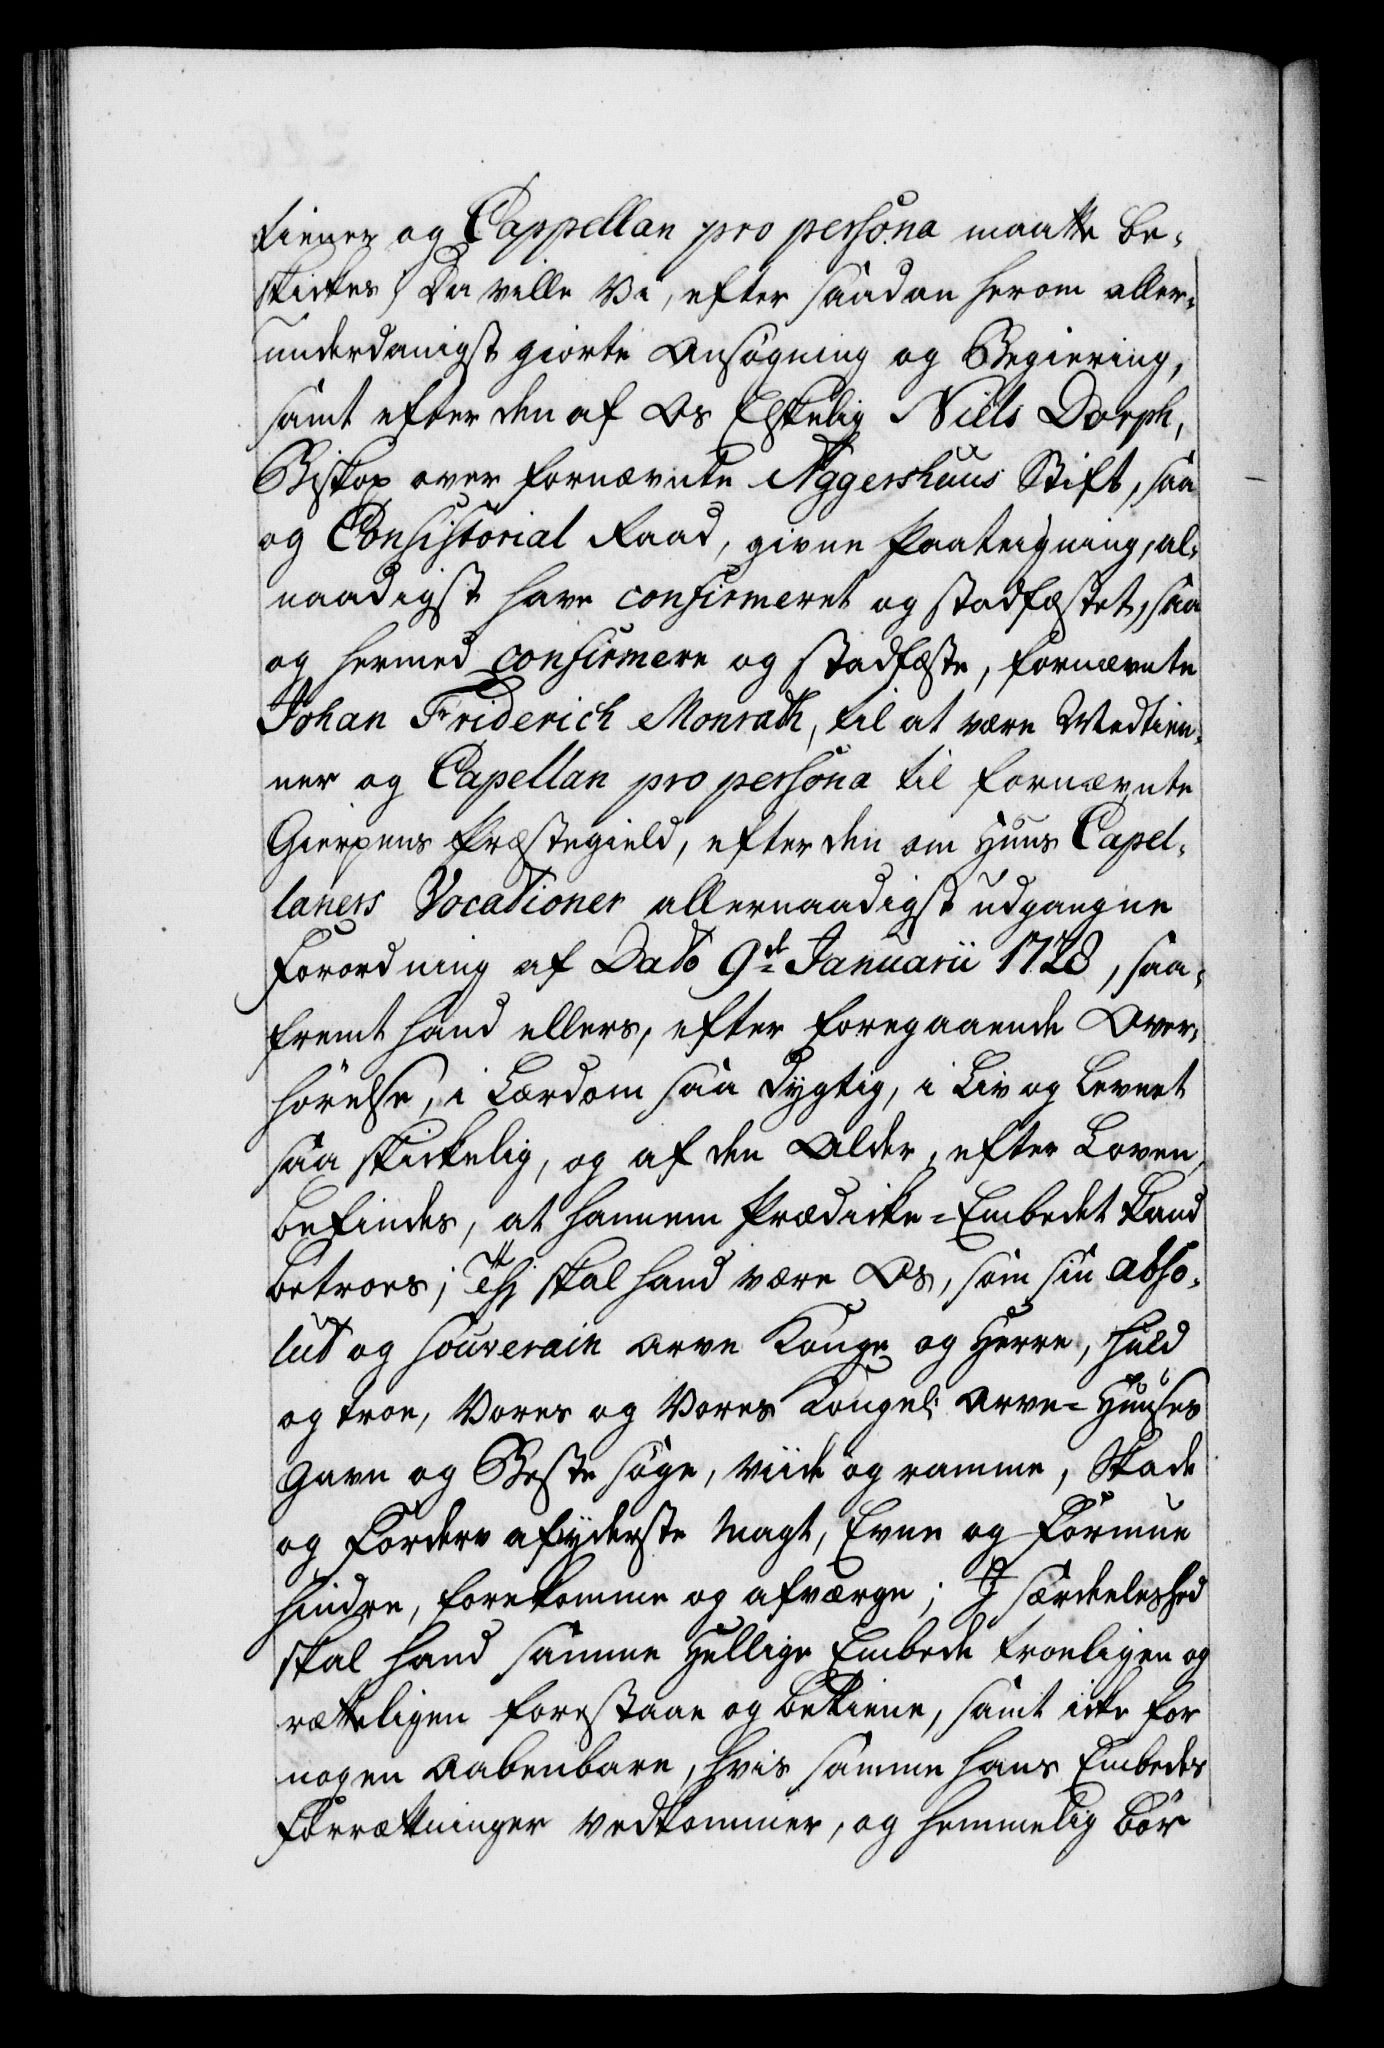 tiener og Cappellan pro persona maatte be-
skickes) Da ville Vi, efter saadan herom aller-
underdanigst giorte Ansøgning og Begiering,
samt efter den af Os Elskelig Niels Dorph,
Biskop over fornævnte Aggershuus Stift, saa
og Consistorial Raad, givne Paateigning, al-
naadigst have confirmeret og stadfæstet, saa
og hermed confirmere og stadfæste, fornævnte
Johan Friderich Monrath, til at være Medtien-
ner og Capellan pro persona til fornævnte
Gierpens Præstegield, efter den om Huus Capel-
laners Vocationer allernaadigst udgangne
Forordning af Dato 9de Januarii 1728, saa-
fremt hand ellers, efter foregaaende Over-
hørelse, i Lærdom saa dygtig, i Liv og Levnet
saa skickelig, og af den Alder, efter Loven,
befindes, at hannem Prædicke-Embedet kand
betroes; Thj skal hand være Os, som sin abso-
lut og souverain Arve Konge og Herre, huld
og troe, Vores og Vores Kongel: Arve-Huuses
Gavn og Beste søge, viide og ramme, Skade
og Forderv af yderste Magt, Evne og Formue
hindre, forekomme og afværge; I særdeleshed
skal hand samme Hellige Embede troeligen og
rætteligen forestaae og betiene, samt icke for
nogen aabenbare, hvis samme hans Embedes
Forrætninger vedkommer, og hemmelig bør